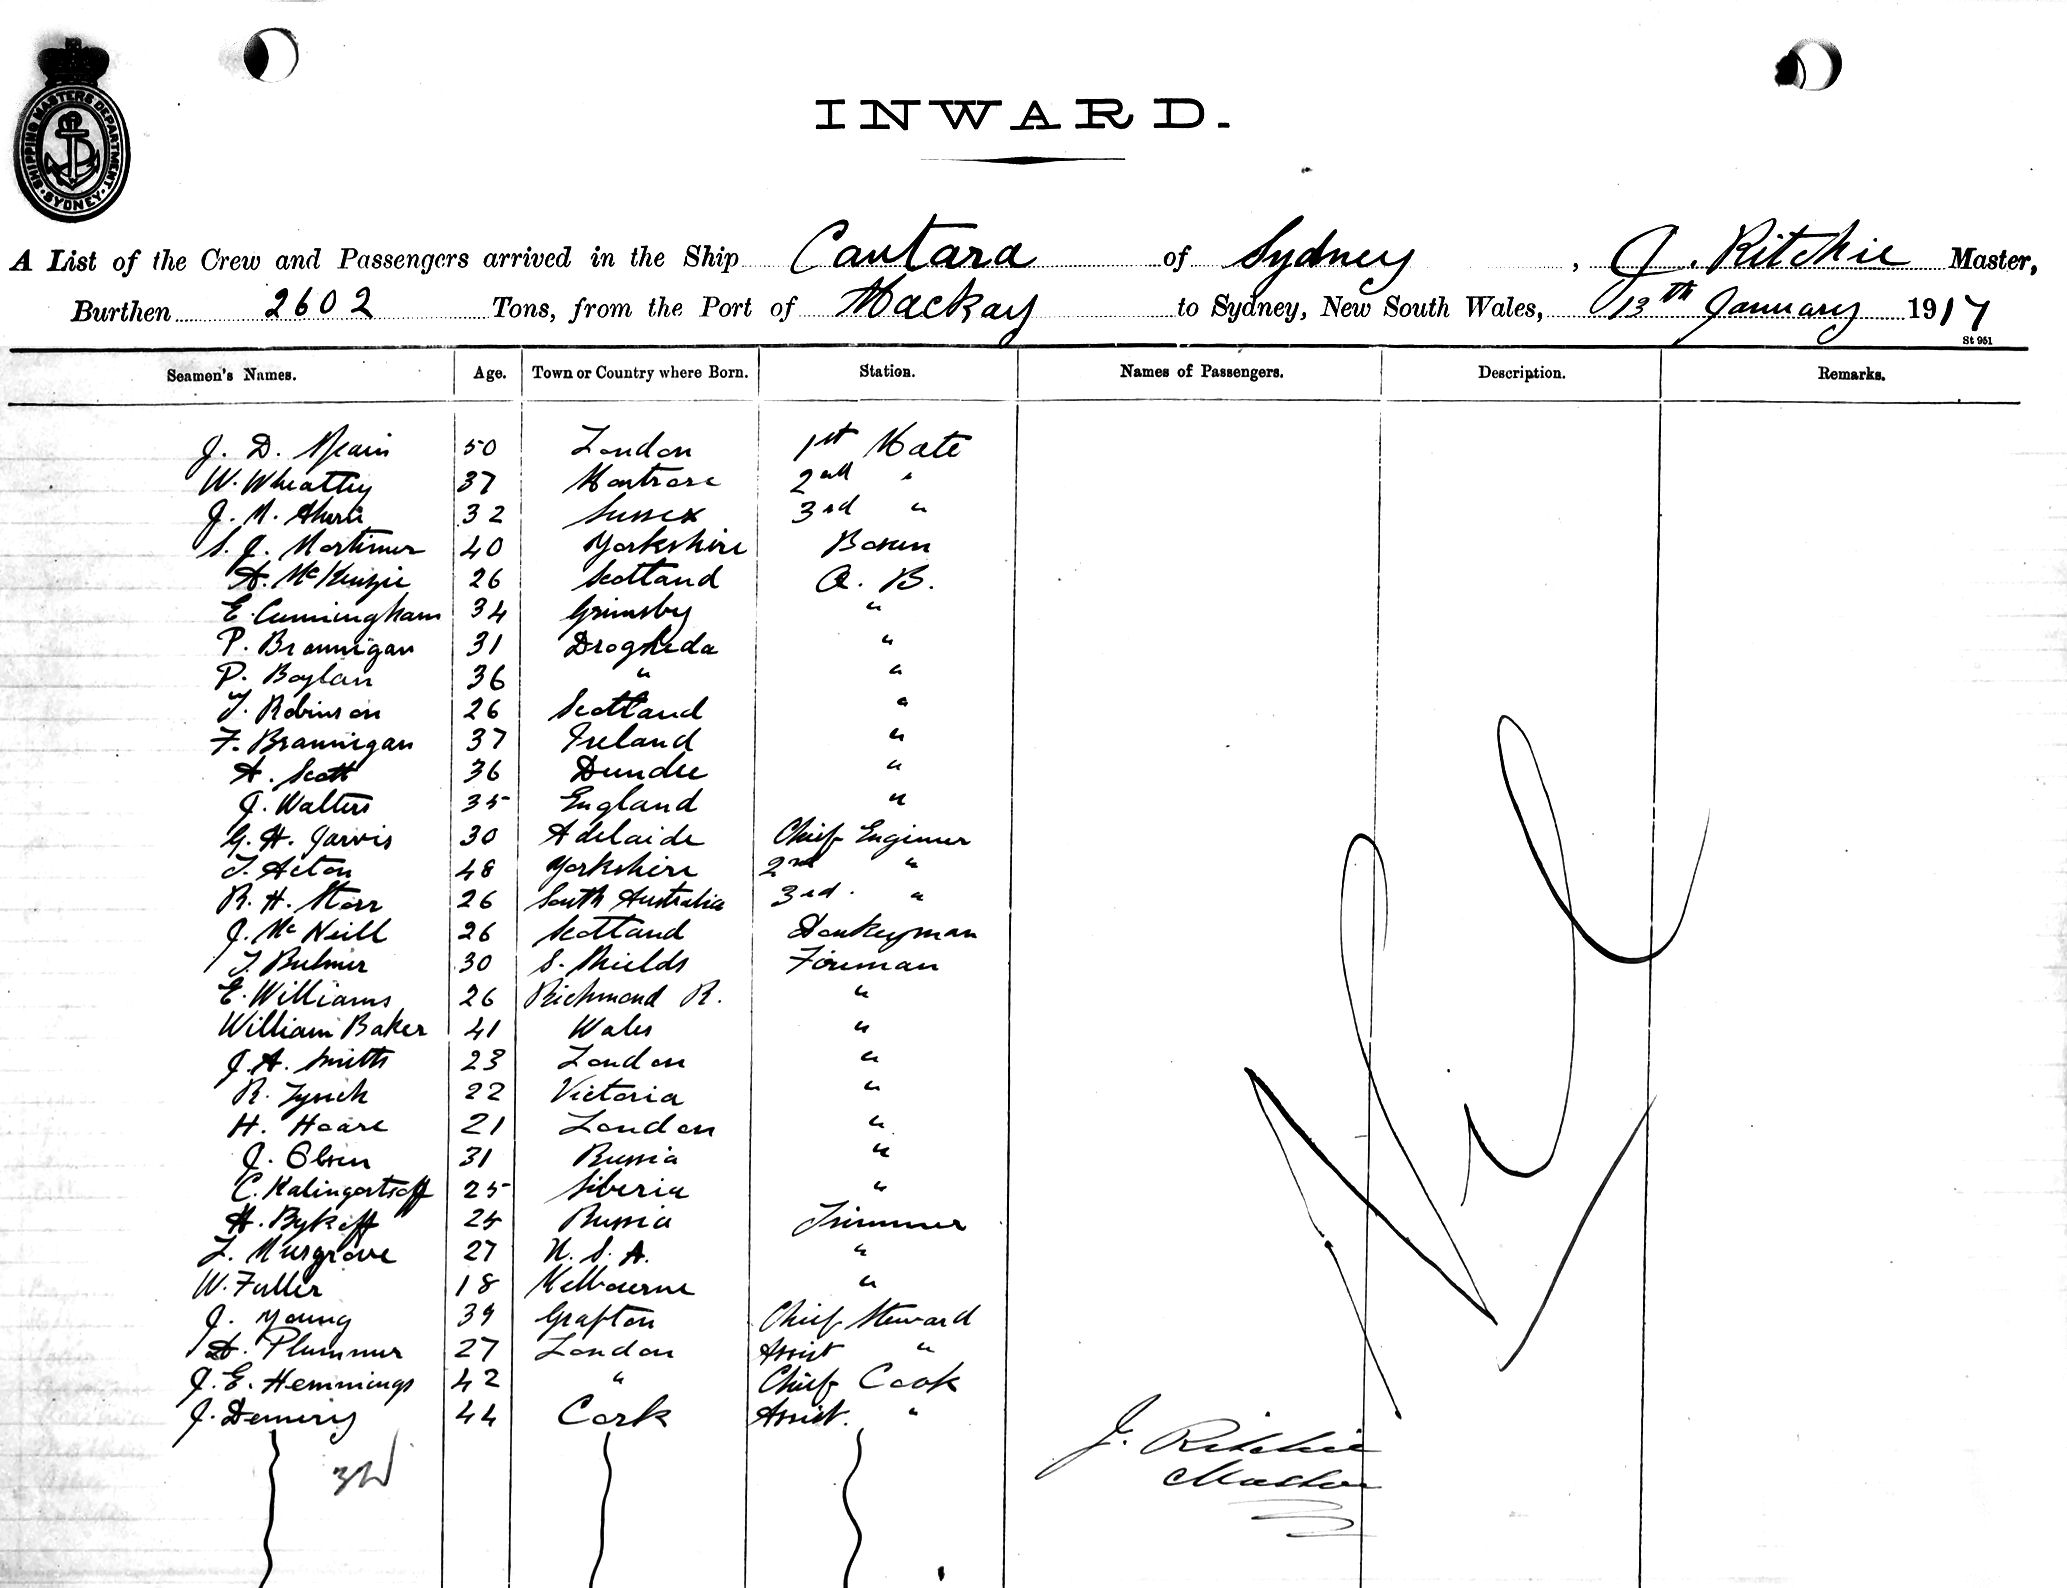 SHIPPING MASTERS DEPARTMENT
SYDNEY
INWARD.
A List of the Crew and Passengers arrived in the Ship Cantara of Sydney, J. Ritchie Master,
Burthen 2602 Tons, from the Port of Mackay to Sydney, New South Wales, 13th January 1917
St 961
Seamen's Names. Age. Town or Country where Born. Station. Names of Passengers. Description. Remarks.
J. D. 50 London 1st Mate
W. Wheatley 37 Montrose 2nd "
J. M. 32 Sussex 3rd "
S. J. Mortimer 40 Yorkshire Bosun
A. McKenzie 26 Scotland A. B.
E. Cunningham 34 Grimsby "
P. Brannigan 31 Drogheda "
P. Boylan 36 " "
T. Robinson 26 Scotland "
F. Brannigan 37 Ireland "
A. Scott 36 Dundee "
J. Walters 35 England "
G. H. Jarvis 30 Adelaide Chief Engineer
T. Acton 48 Yorkshire 2nd "
R. H. Storr 26 South Australia 3rd. "
J. McNeill 26 Scotland Donkeyman
T. Bulmer 30 S. Shields Fireman
E. Williams 26 Richmond R. "
William Baker 41 Wales "
J. A. Smith 23 London "
R. Lynch 22 Victoria "
H. Hoare 21 London "
J. Olsen 31 Russia "
C. Kalingortsoff 25 Siberia "
H. Bykoff 25 Russia Trimmer
L. Musgrove 27 U. S. A. "
W. Fuller 18 Melbourne "
J. Young 39 Grafton Chief Steward
A. Plummer 27 London Assist "
J. E. Hemmings 42 " Chief Cook
J. 44 Cork Assist. "
Nil
J. Ritchie
Master